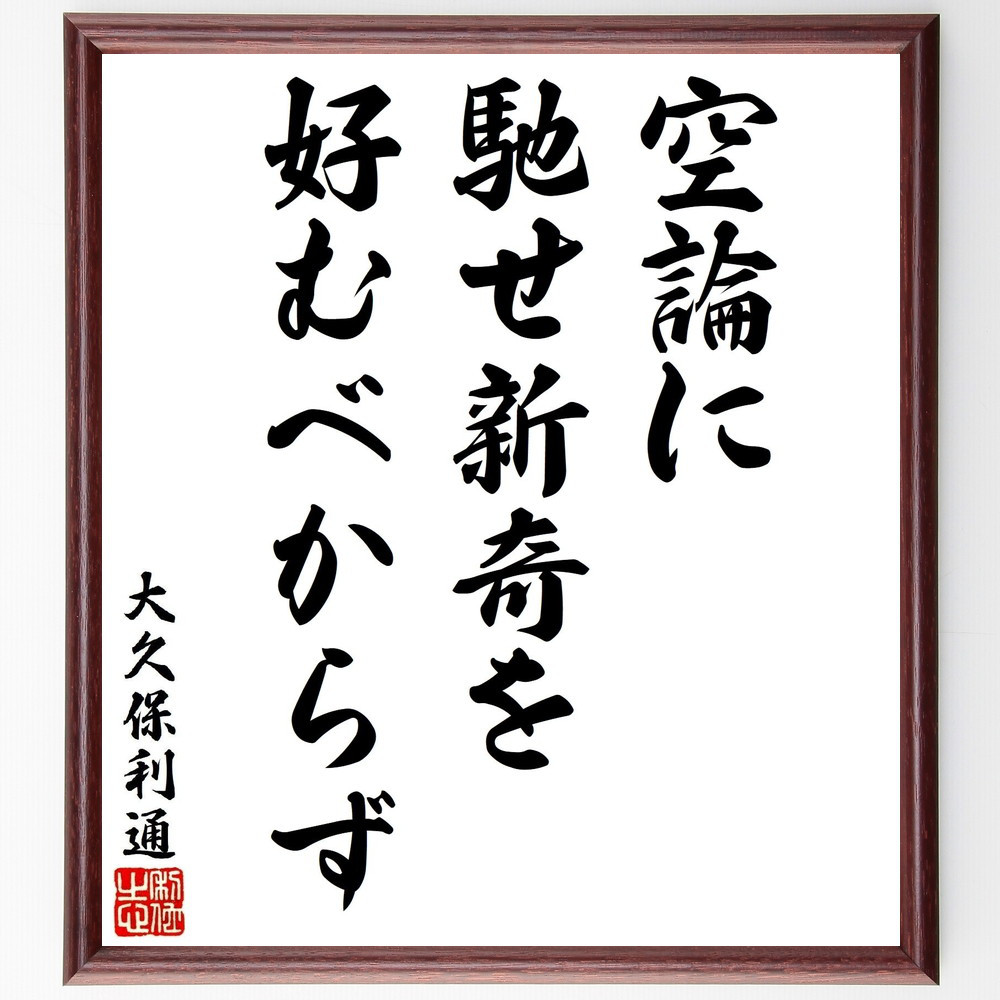 空論に
馳せ新奇を
好むべからず
大久保利通